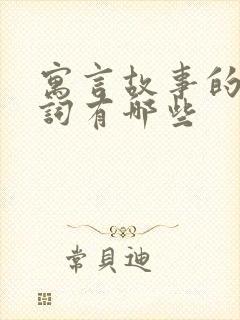 寓言故事的
詞有哪些
常貝迪